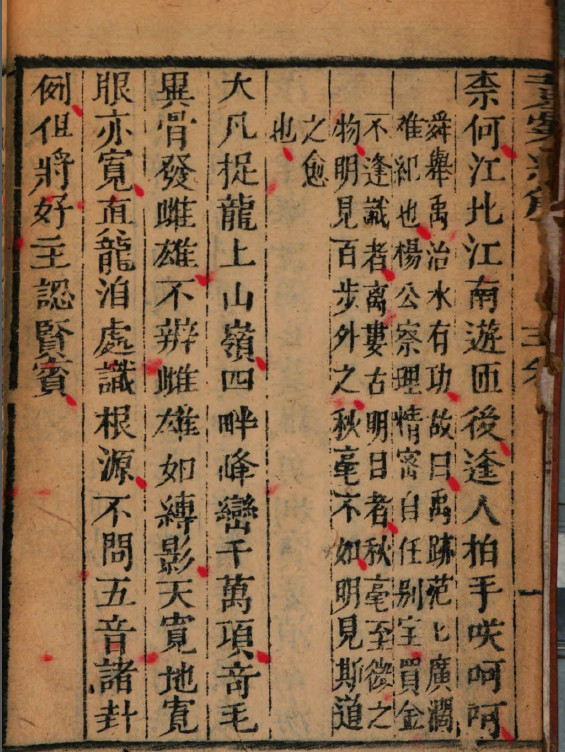 柰何江北江南遊匝後逢人拍手咲呵呵
舜舉禹治水有功故曰禹跡范匕廣濶
紀也楊公察理情宻自任别宝買金
不逢識者離婁古明日者秋毫至微之
物明見百步外之秋毫不如明見斯道
之愈
也
大凡捉龍上山嶺四畔峰巒千萬項竒毛
異骨發雌雄不辨雌雄如縛影天寛地寛
眼亦寛直龍泊處識根源不問五音諸卦
例但將好主認賢賓